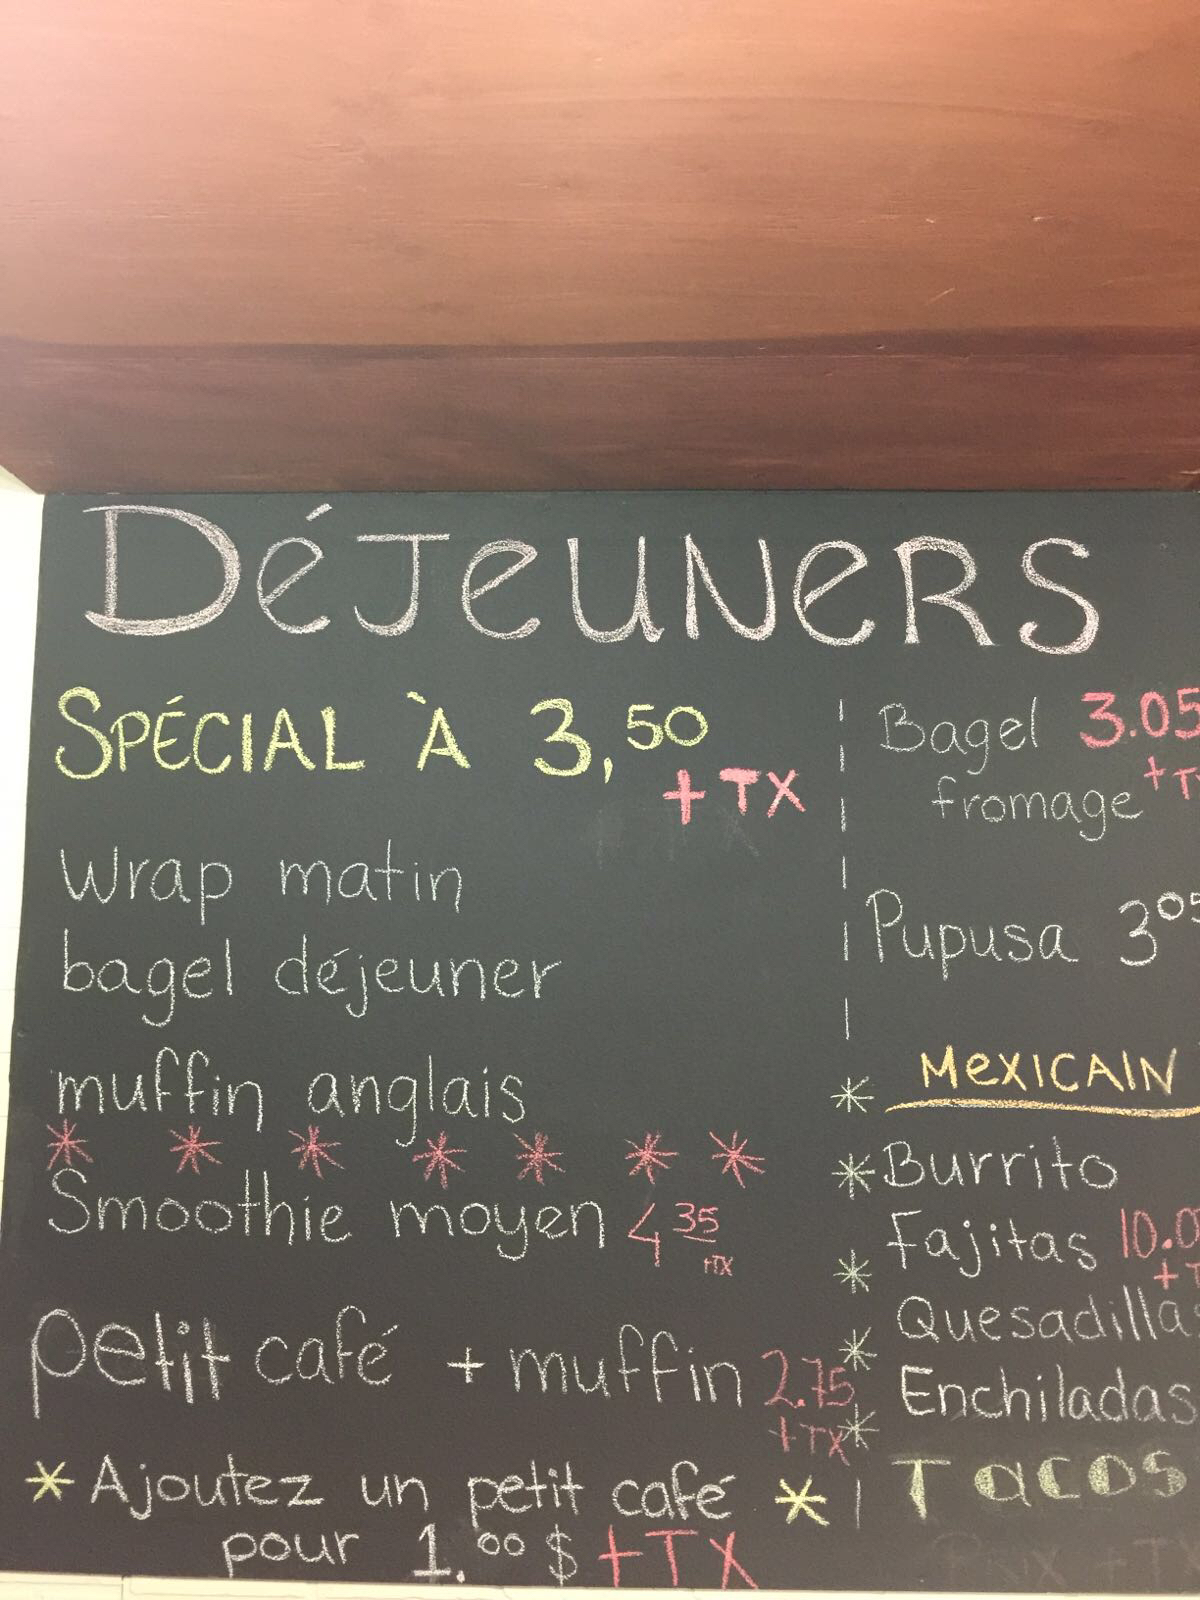 DéJeUNeRS
SPÉCIAL À 3,50
+TX
Wrap matin
bagel déjeuner
muffin anglais
* * * * * * *
Smoothie moyen 4 35
+TX
petit café + muffin 2.75
+TX
* Ajoutez un petit café *
pour 1.00 $ +TX
Bagel 3.05
fromage
Pupusa 3 05
* MeXICAIN
* Burrito
Fajitas
* Quesadillas
* Enchiladas
* TACOS